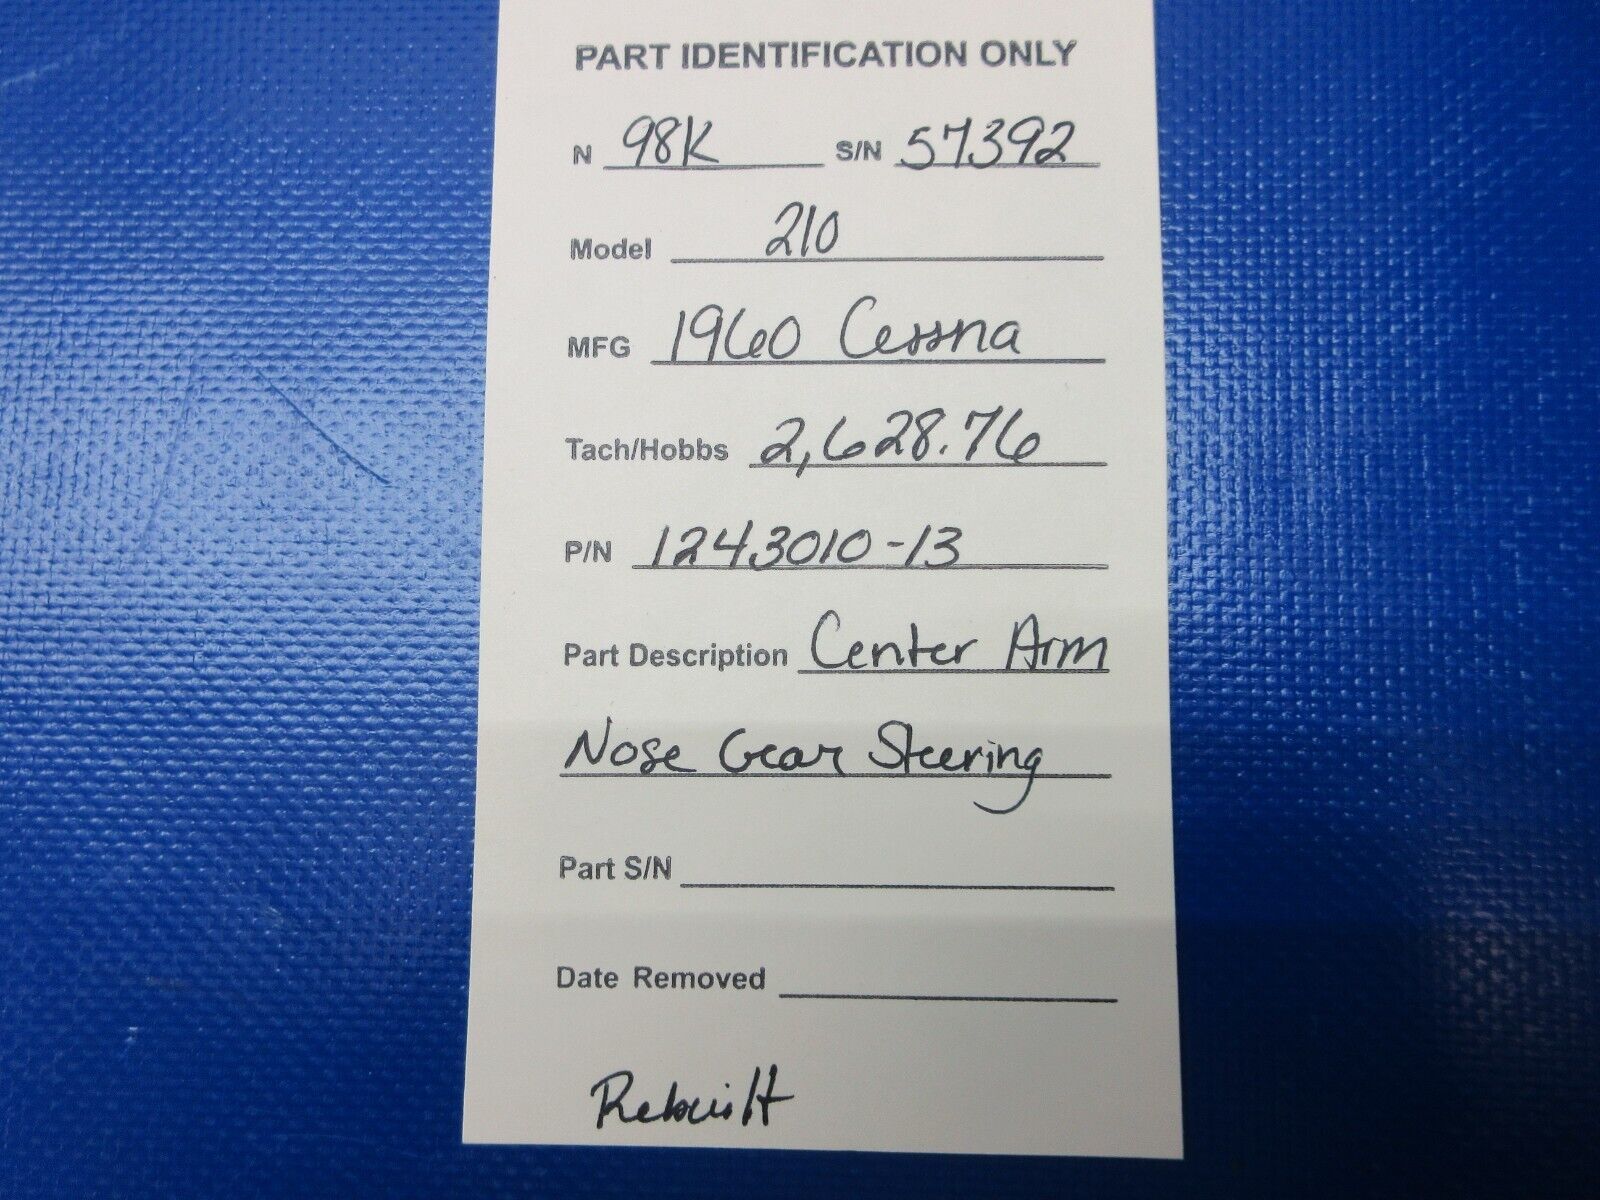 PART IDENTIFICATION ONLY
N 98K S/N 57392
Model 210
MFG 1960 Cessna
Tach/Hobbs 2,628.76
P/N 1243010-13
Part Description Center Arm
Nose Gear Steering
Part S/N
Date Removed
Rebuilt